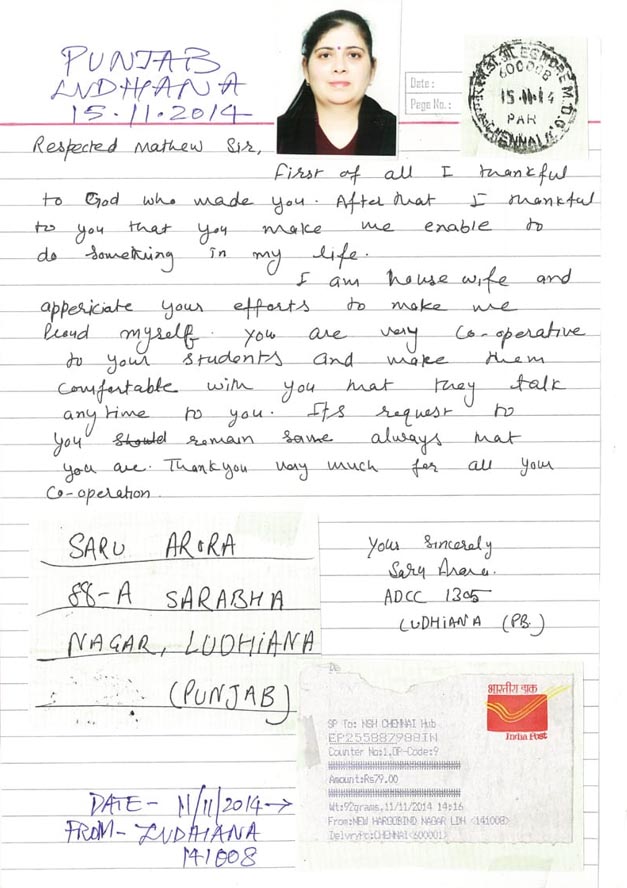 PUNJAB
LUDHIANA
15.11.2014
Date:
Page No.:
EGMORE M.D.G.
600008
15.11.14
PAR
CHENNAI
Respected Mathew Sir,
First of all I thankful
to God who made you. After that I thankful
to you that you make me enable to
do something in my life.
I am house wife and
appericiate your efforts to make me
Proud myself. you are very Co-operative
to your students and make them
comfortable with you that they talk
anytime to you. Its request to
you should remain same always that
you are. Thankyou very much for all your
Co-operation.
SARU ARORA
88-A SARABHA
NAGAR, LUDHIANA
(PUNJAB)
Your Sincerely
Saru Arora.
ADCC 1305
LUDHIANA (PB.)
भारतीय डाक
India Post
SP To: NSH CHENNAI Hub
EP255887988IN
Counter No:1,OP-Code:9
Amount:Rs79.00
Wt:92grams,11/11/2014 14:16
From:NEW HARGOBIND NAGAR LDH <141008>
Delvry to:CHENNAI<600001>
DATE- 11/11/2014→
FROM- LUDHIANA
141008